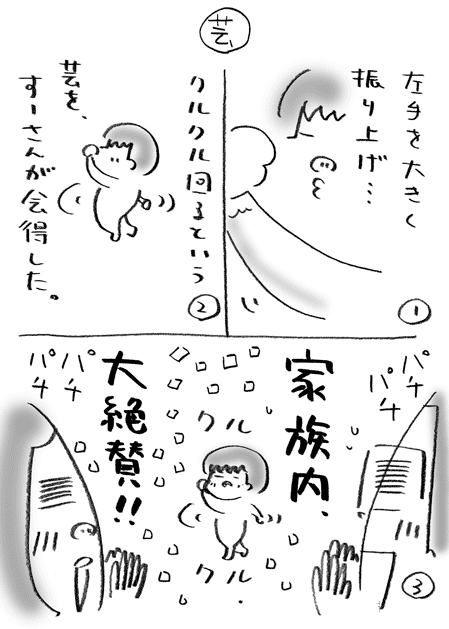 芸
左手を大きく
振り上げ…
①
クルクル回るという
芸を、
すーさんが会得した。
②
家族内、
大絶賛!!
パチ
パチ
パチ
パチ
クル
クル
③